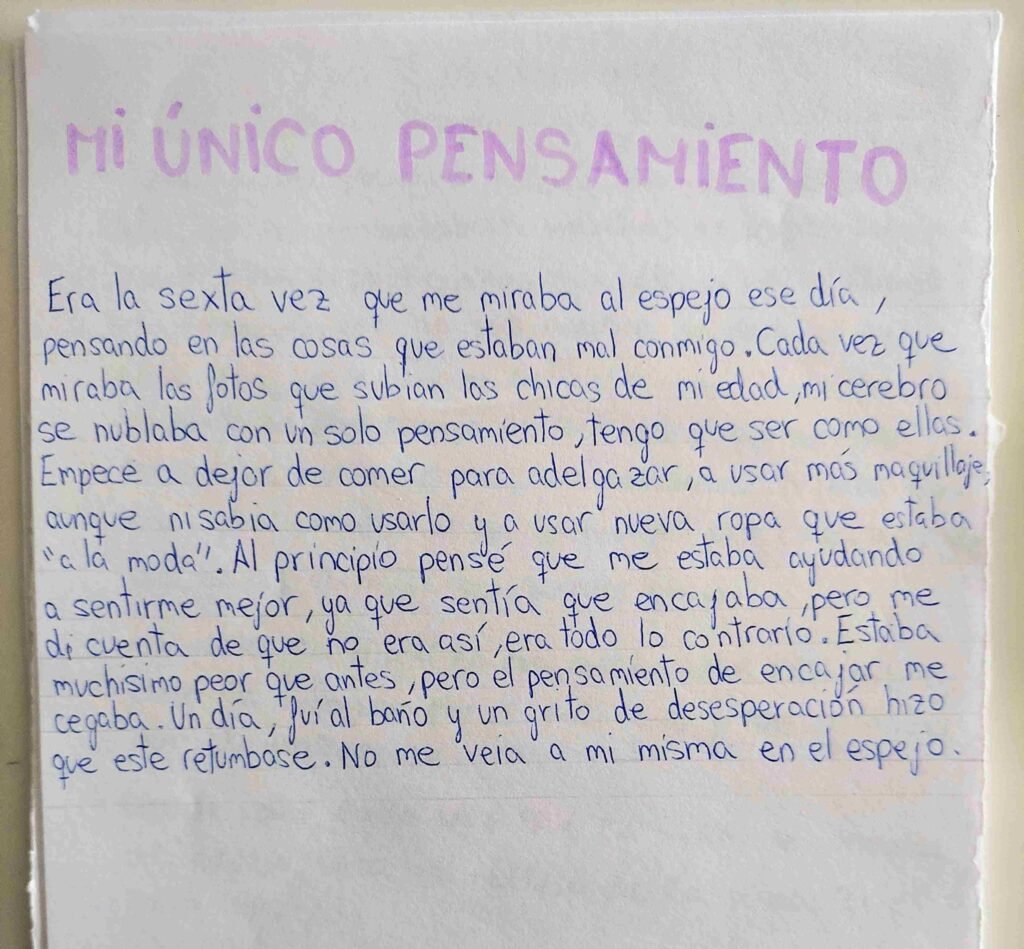 MI ÚNICO PENSAMIENTO
Era la sexta vez que me miraba al espejo ese día,
pensando en las cosas que estaban mal conmigo. Cada vez que
miraba las fotos que subian las chicas de mi edad, mi cerebro
se nublaba con un solo pensamiento, tengo que ser como ellas.
Empecé a dejar de comer para adelgazar, a usar más maquillaje,
aunque ni sabia como usarlo y a usar nueva ropa que estaba
"a la moda". Al principio pensé que me estaba ayudando
a sentirme mejor, ya que sentía que encajaba, pero me
di cuenta de que no era así, era todo lo contrario. Estaba
muchisimo peor que antes, pero el pensamiento de encajar me
cegaba. Un día, fuí al baño y un grito de desesperación hizo
que este retumbase. No me veia a mi misma en el espejo.